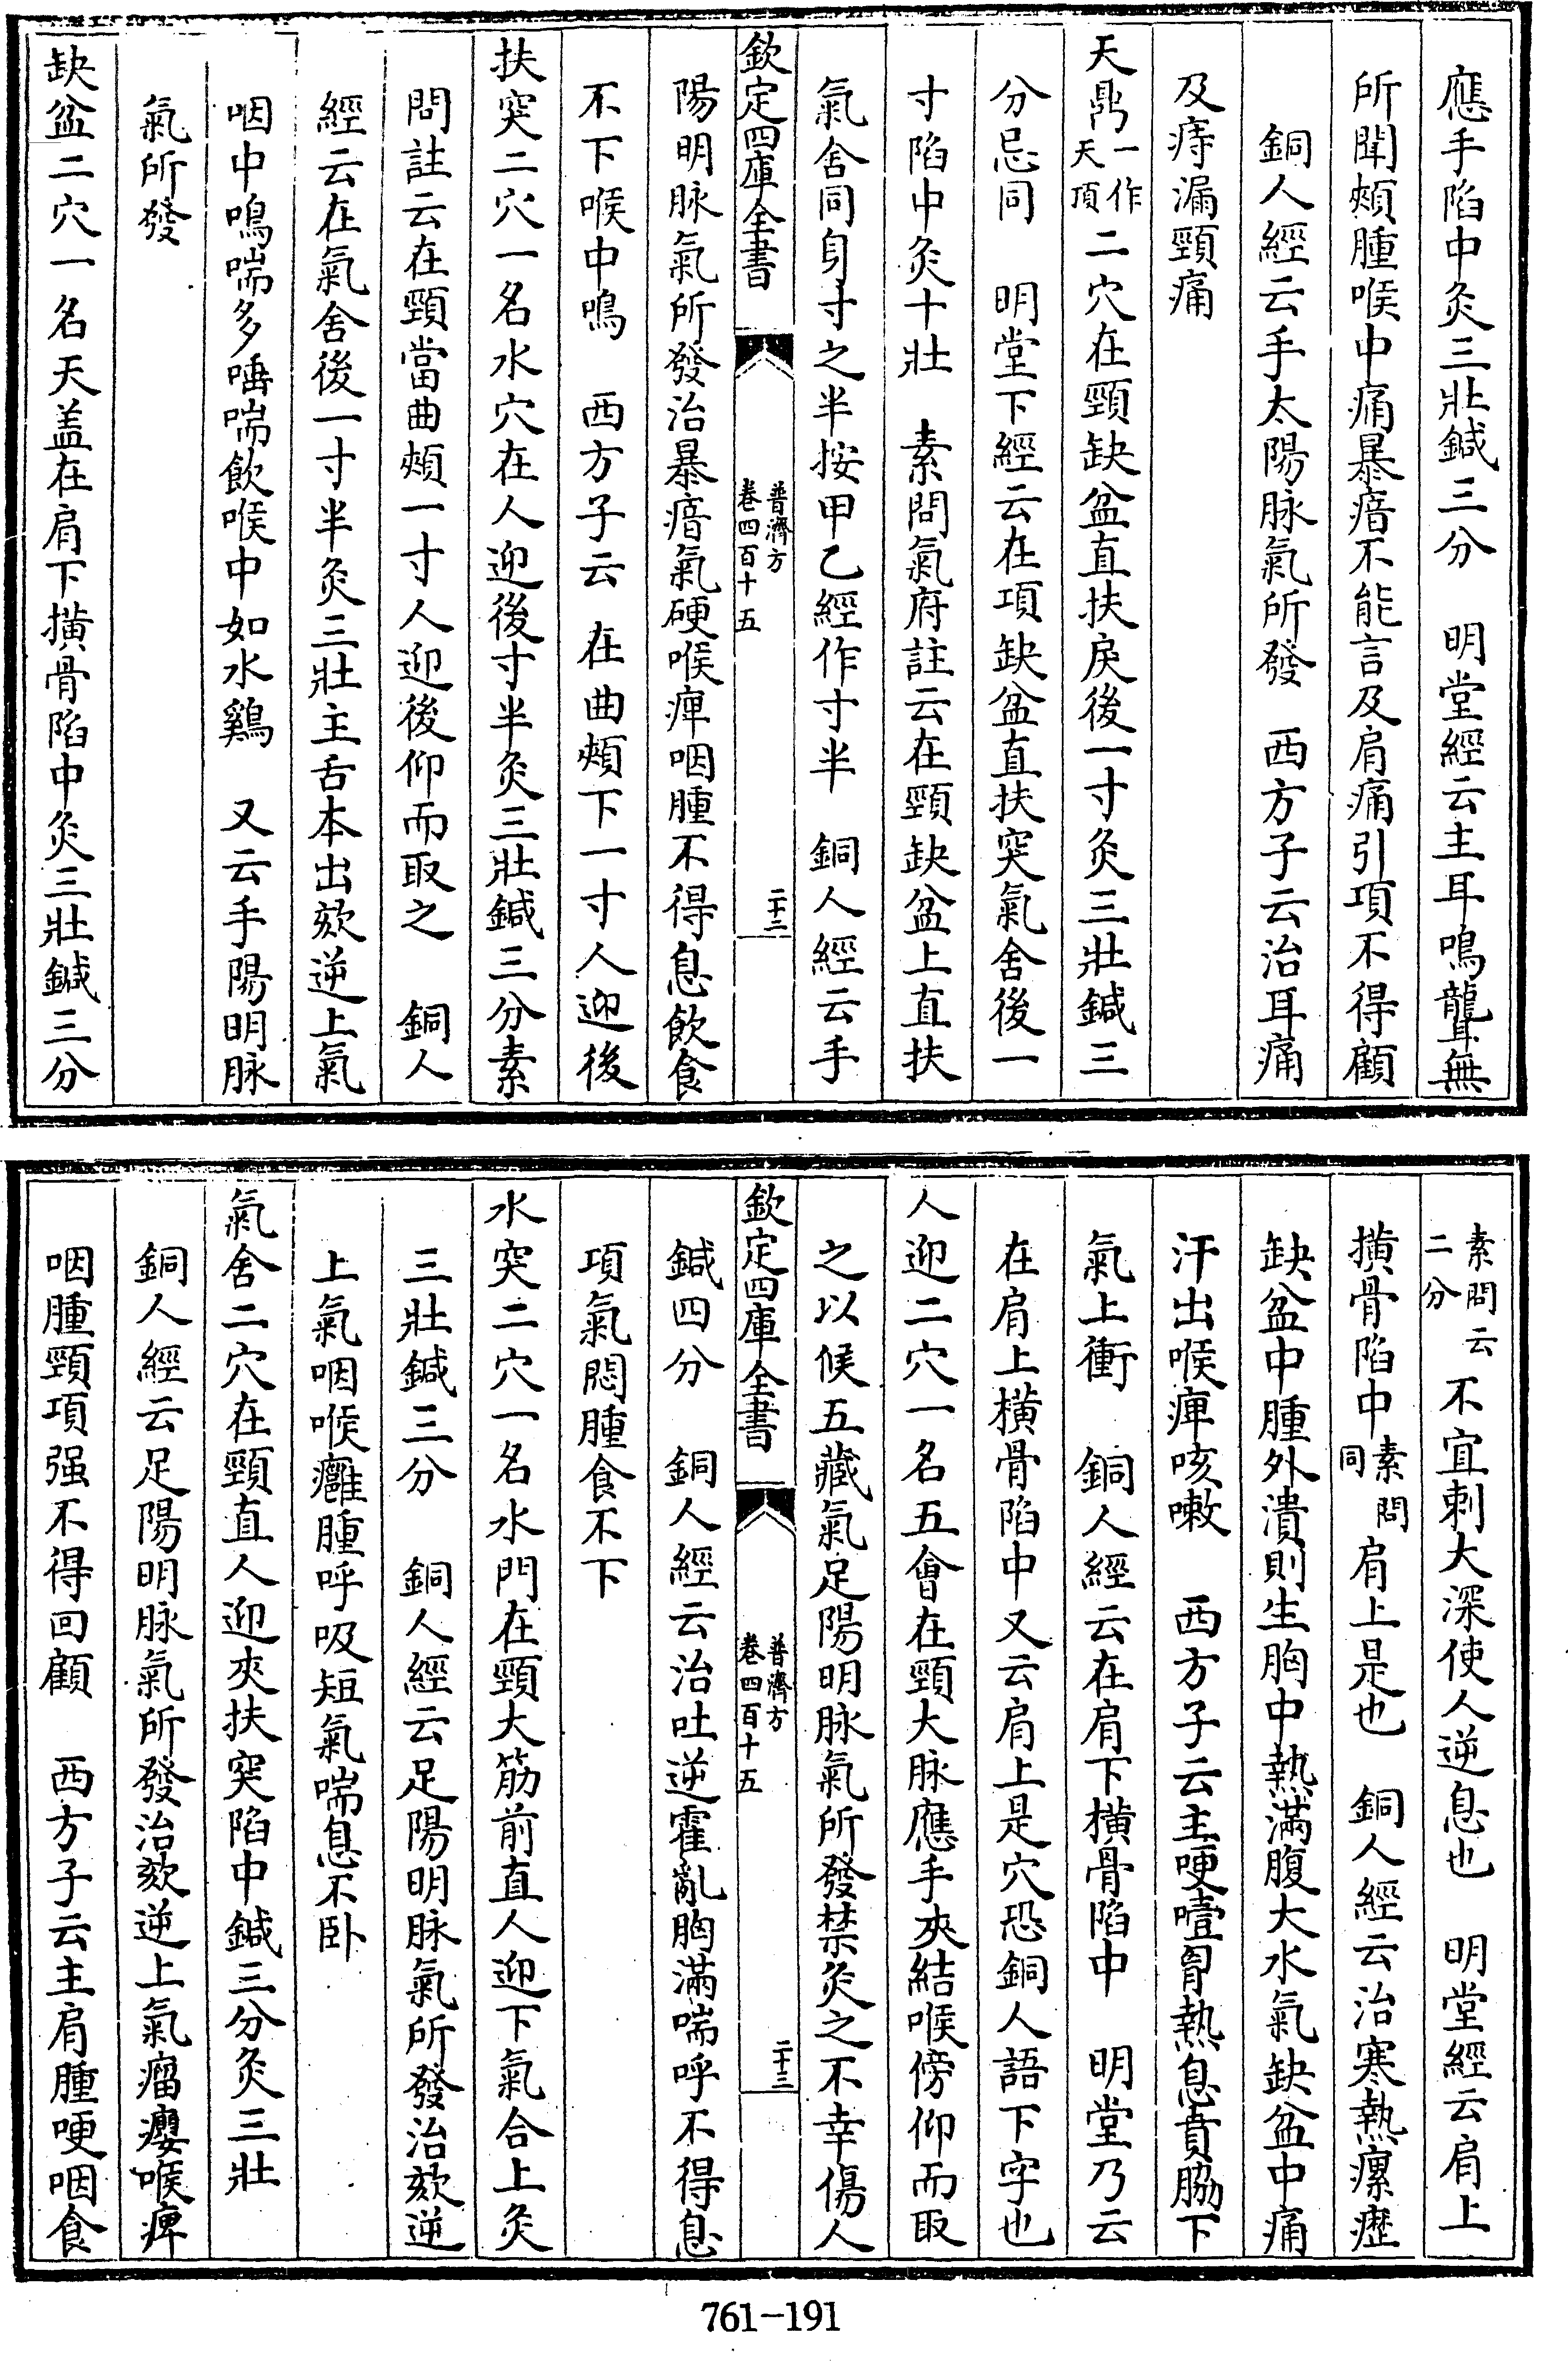 應手陷中灸三壯鍼三分　明堂經云主耳鳴聾無
所聞頰腫喉中痛暴瘖不能言及肩痛引項不得顧
銅人經云手太陽脉氣所發　西方子云治耳痛
及痔漏頸痛
天鼎一作天項二穴在頸缺盆直扶戾後一寸灸三壯鍼三
分忌同　明堂下經云在項缺盆直扶突氣舍後一
寸陷中灸十壯　素問氣府註云在頸缺盆上直扶
氣舍同身寸之半按甲乙經作寸半　銅人經云手
欽定四庫全書
普濟方
卷四百十五
二十二
陽明脉氣所發治暴瘖氣硬喉痺咽腫不得息飲食
不下喉中鳴　西方子云　在曲頰下一寸人迎後
扶突二穴一名水穴在人迎後寸半灸三壯鍼三分素
問註云在頸當曲頰一寸人迎後仰而取之　銅人
經云在氣舍後一寸半灸三壯主舌本出欬逆上氣
咽中鳴喘多唾喘飲喉中如水鷄　又云手陽明脉
氣所發
缺盆二穴一名天盖在肩下擴骨陷中灸三壯鍼三分
素問云二分不宜刺大深使人逆息也　明堂經云肩上
擴骨陷中素問同肩上是也　銅人經云治寒熱瘰癧
缺盆中腫外潰則生胸中熱滿腹大水氣缺盆中痛
汗出喉痺咳嗽　西方子云主哽噎胷熱息賁脇下
氣上衝　銅人經云在肩下橫骨陷中　明堂乃云
在肩上橫骨陷中又云肩上是穴恐銅人語下字也
人迎二穴一名五會在頸大脉應手夾結喉傍仰而取
之以候五藏氣足陽明脉氣所發禁灸之不幸傷人
欽定四庫全書
普濟方
卷四百十五
二十三
鍼四分　銅人經云治吐逆霍亂胸滿喘呼不得息
項氣悶腫食不下
水突二穴一名水門在頸大筋前直人迎下氣合上灸
三壯鍼三分　銅人經云足陽明脉氣所發治欬逆
上氣咽喉癰腫呼吸短氣喘息不卧
氣舍二穴在頸直人迎夾扶突陷中鍼三分灸三壯
銅人經云足陽明脉氣所發治欬逆上氣瘤癭喉痺
咽腫頸項强不得回顧　西方子云主肩腫哽咽食
761-191